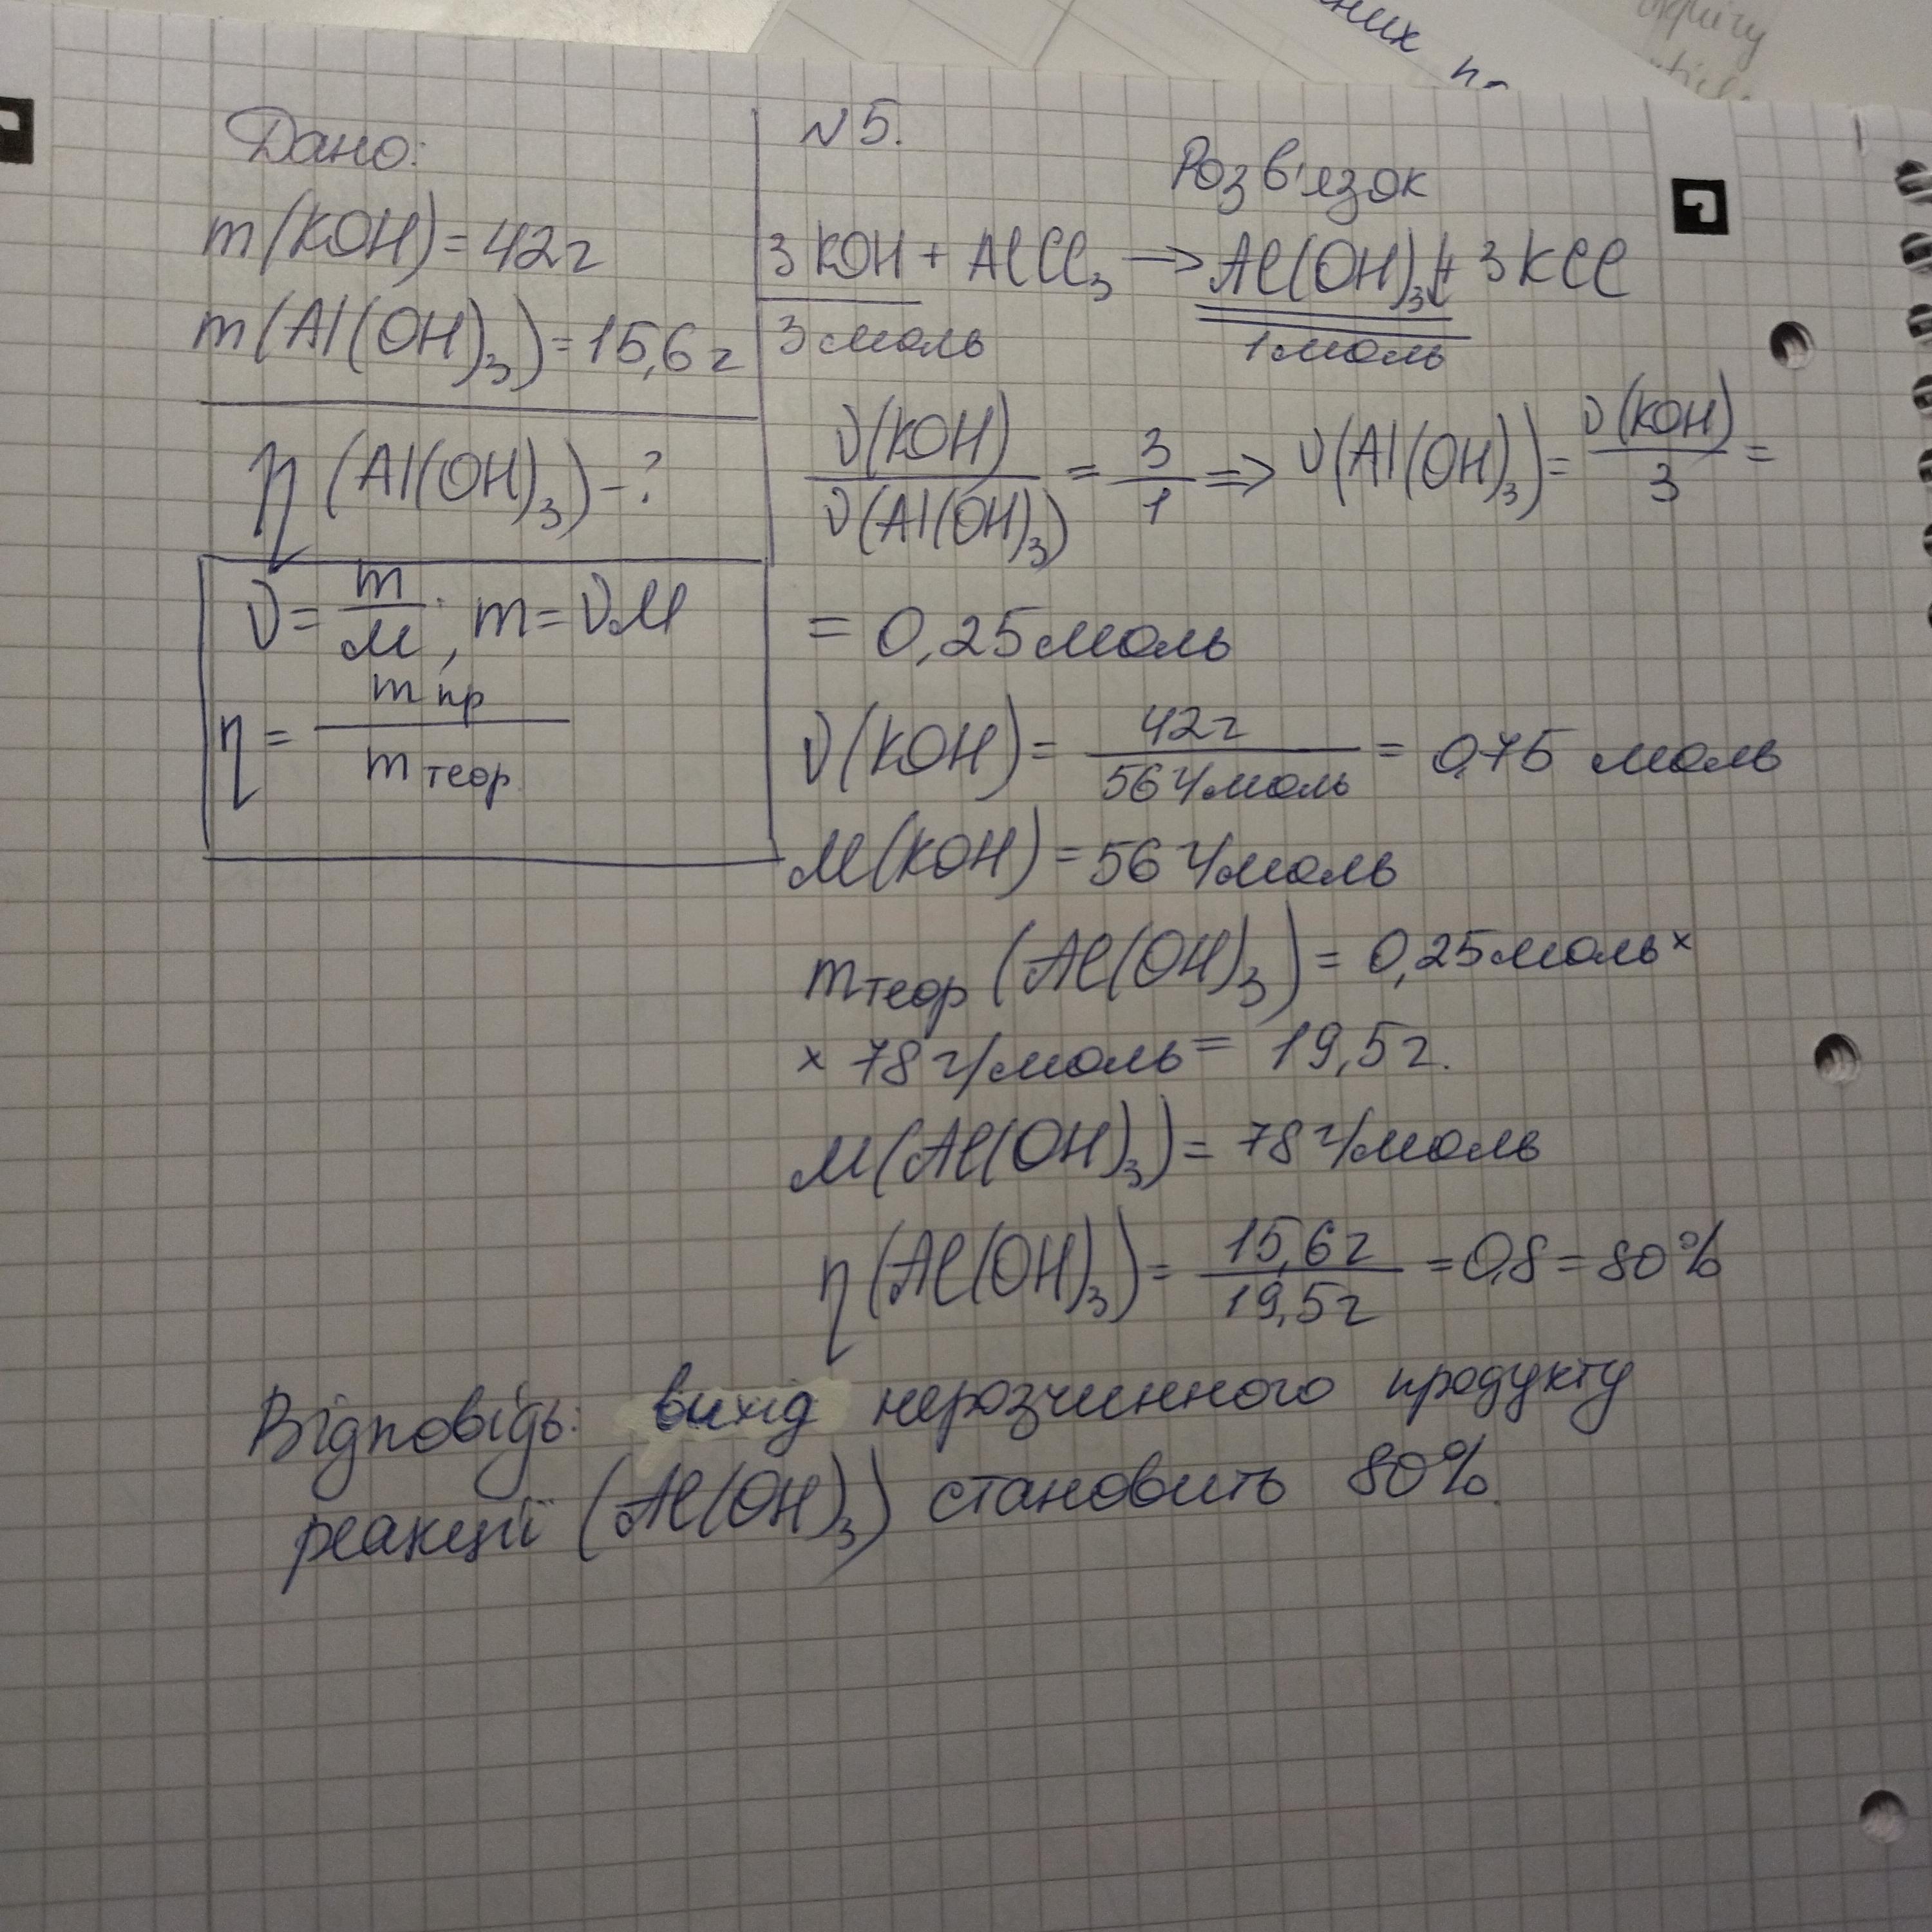 них
Дано:
m(KOH) = 42г
m(Al(OH)₃) = 15,6г
η (Al(OH)₃) - ?
ν = m/M ; m = ν·M
η = m пр / m теор.
№5.
Розв'язок
3KOH + AlCl₃ → Al(OH)₃↓ + 3KCl
3 моль 1 моль
ν(KOH) / ν(Al(OH)₃) = 3/1 => ν(Al(OH)₃) = ν(KOH)/3 =
= 0,25 моль
ν(KOH) = 42г / 56 г/моль = 0,75 моль
M(KOH) = 56 г/моль
m теор (Al(OH)₃) = 0,25 моль ×
× 78 г/моль = 19,5г.
M(Al(OH)₃) = 78 г/моль
η(Al(OH)₃) = 15,6г / 19,5г = 0,8 = 80%
Відповідь: вихід нерозчинного продукту
реакції (Al(OH)₃) становить 80%.